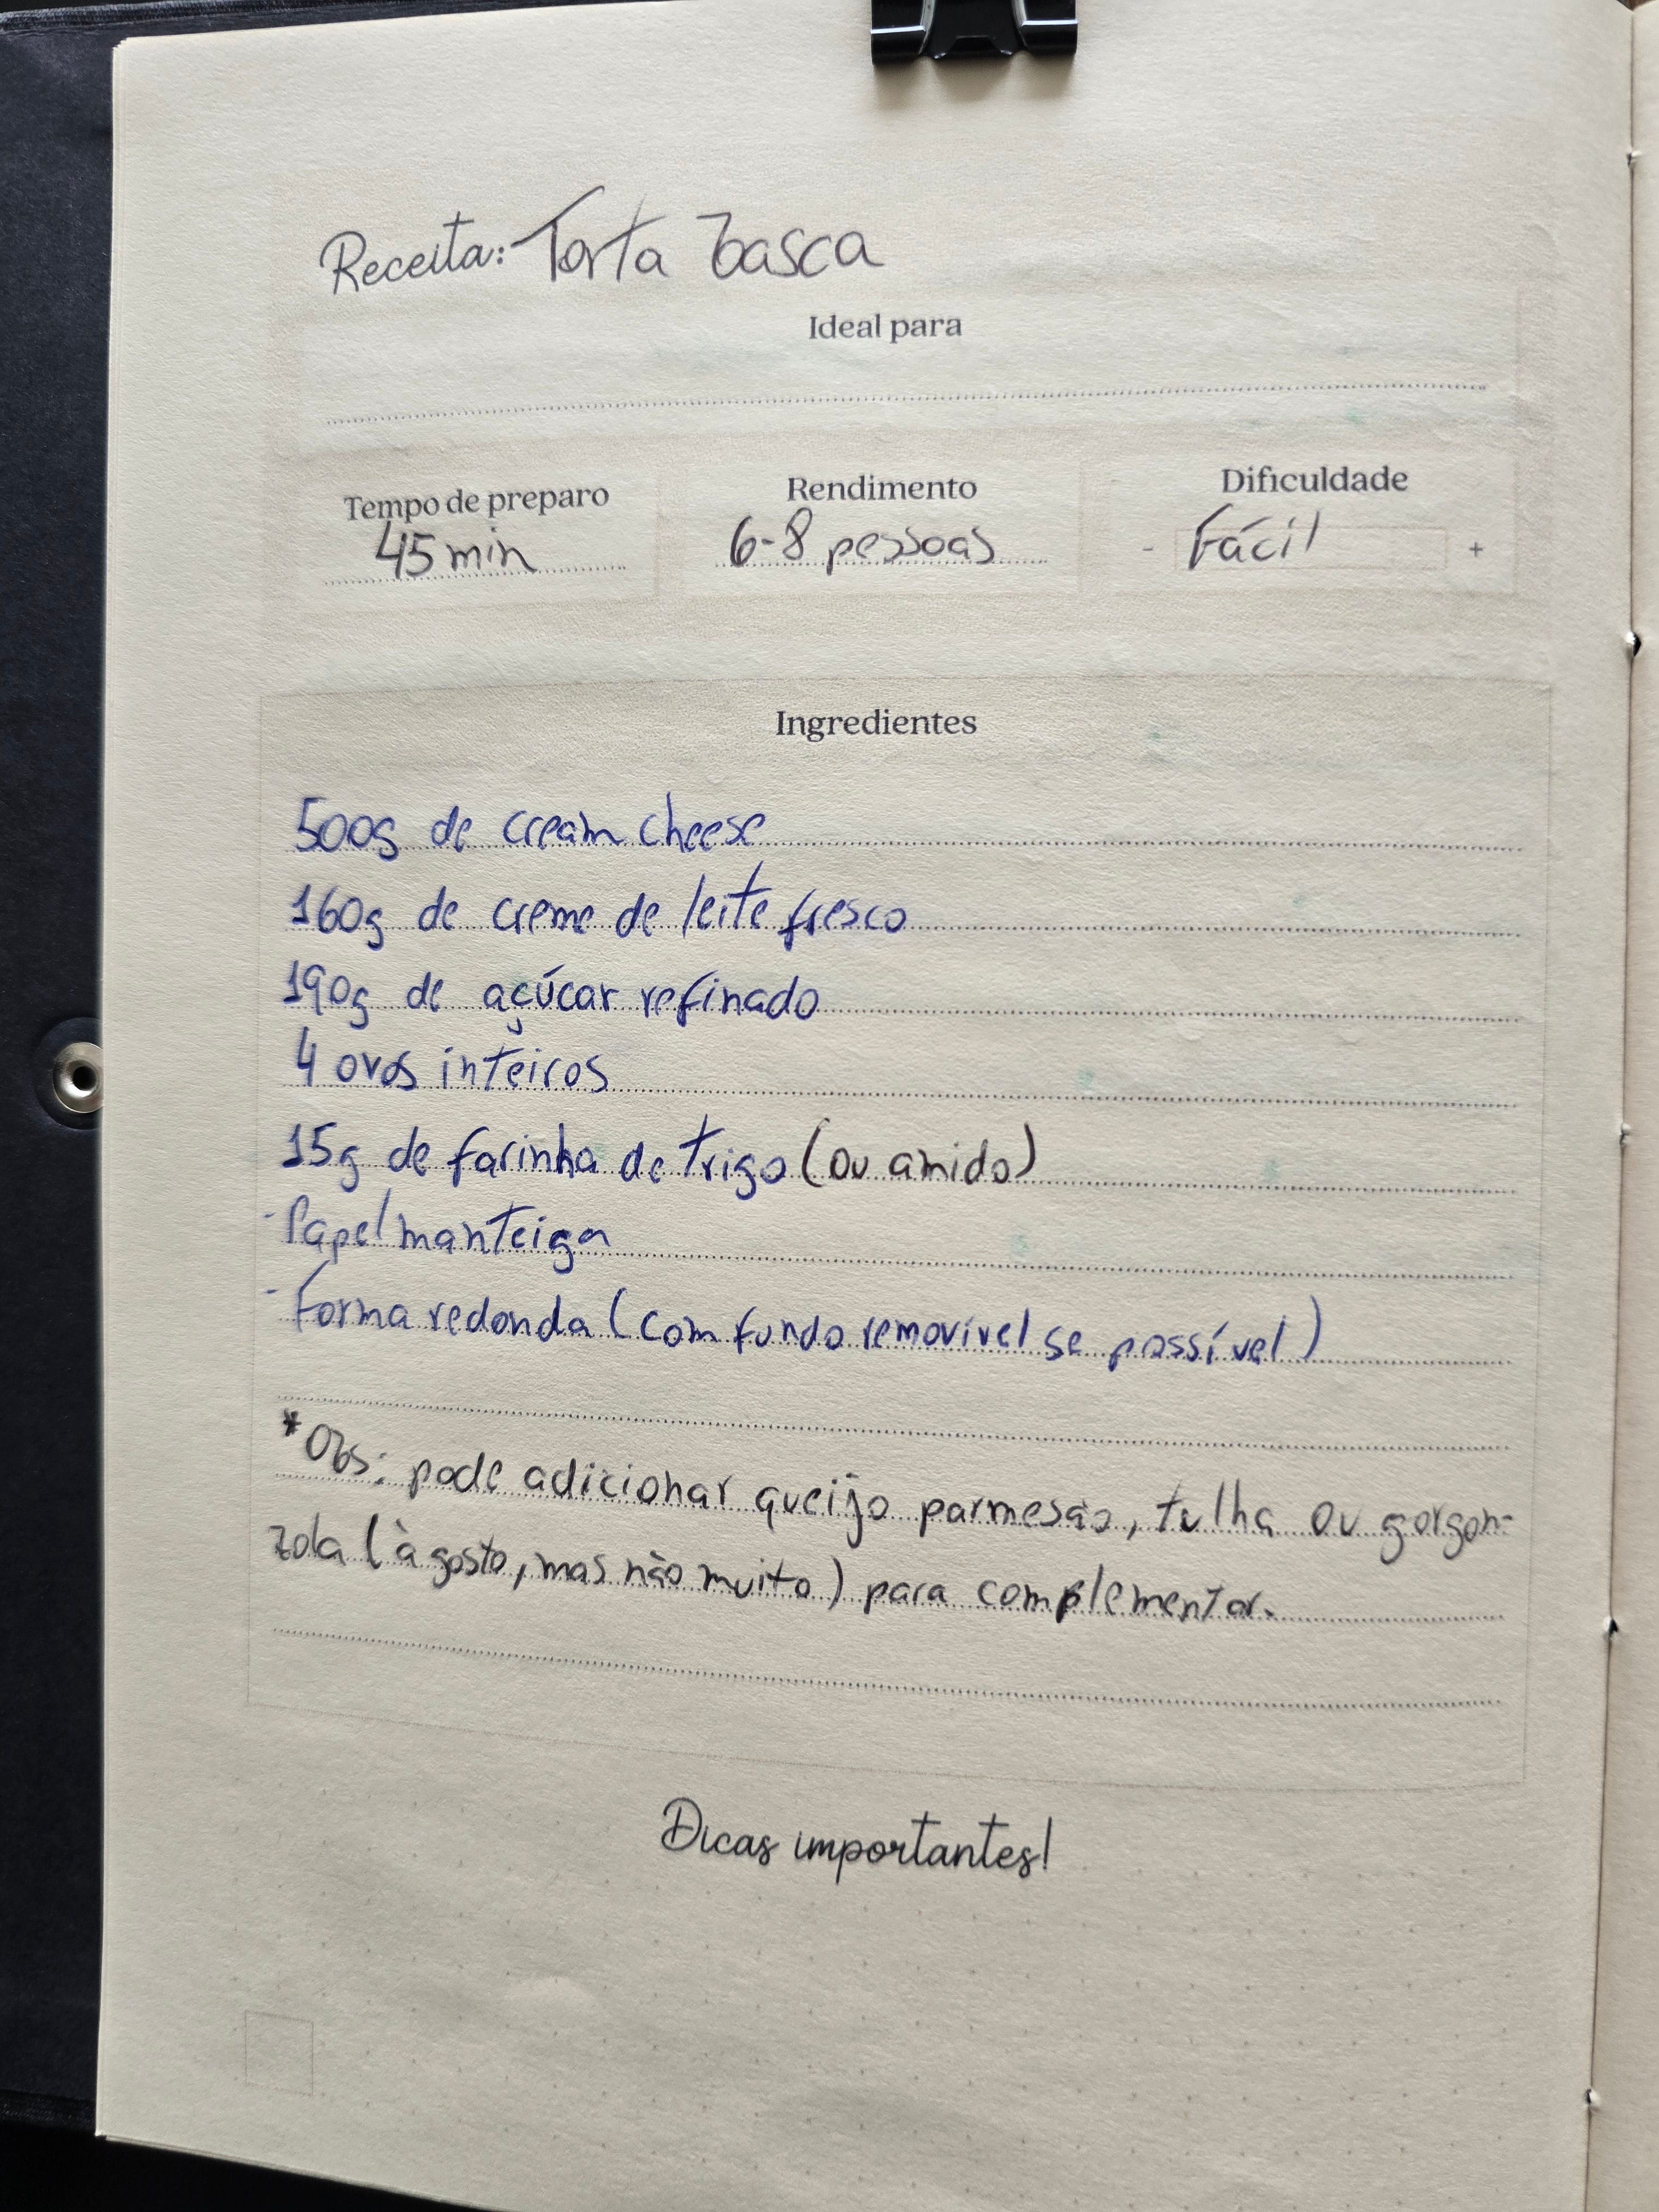 Receita: Torta basca
Ideal para
Tempo de preparo
45 min
Rendimento
6-8 pessoas
Dificuldade
- Fácil +
Ingredientes
500g de cream cheese
160g de creme de leite fresco
190g de açúcar refinado
4 ovos inteiros
15g de farinha de trigo (ou amido)
- Papel manteiga
- Forma redonda (com fundo removível se possível)
*Obs: pode adicionar queijo parmesão, tulha ou gorgon-
zola (à gosto, mas não muito) para complementar.
Dicas importantes!